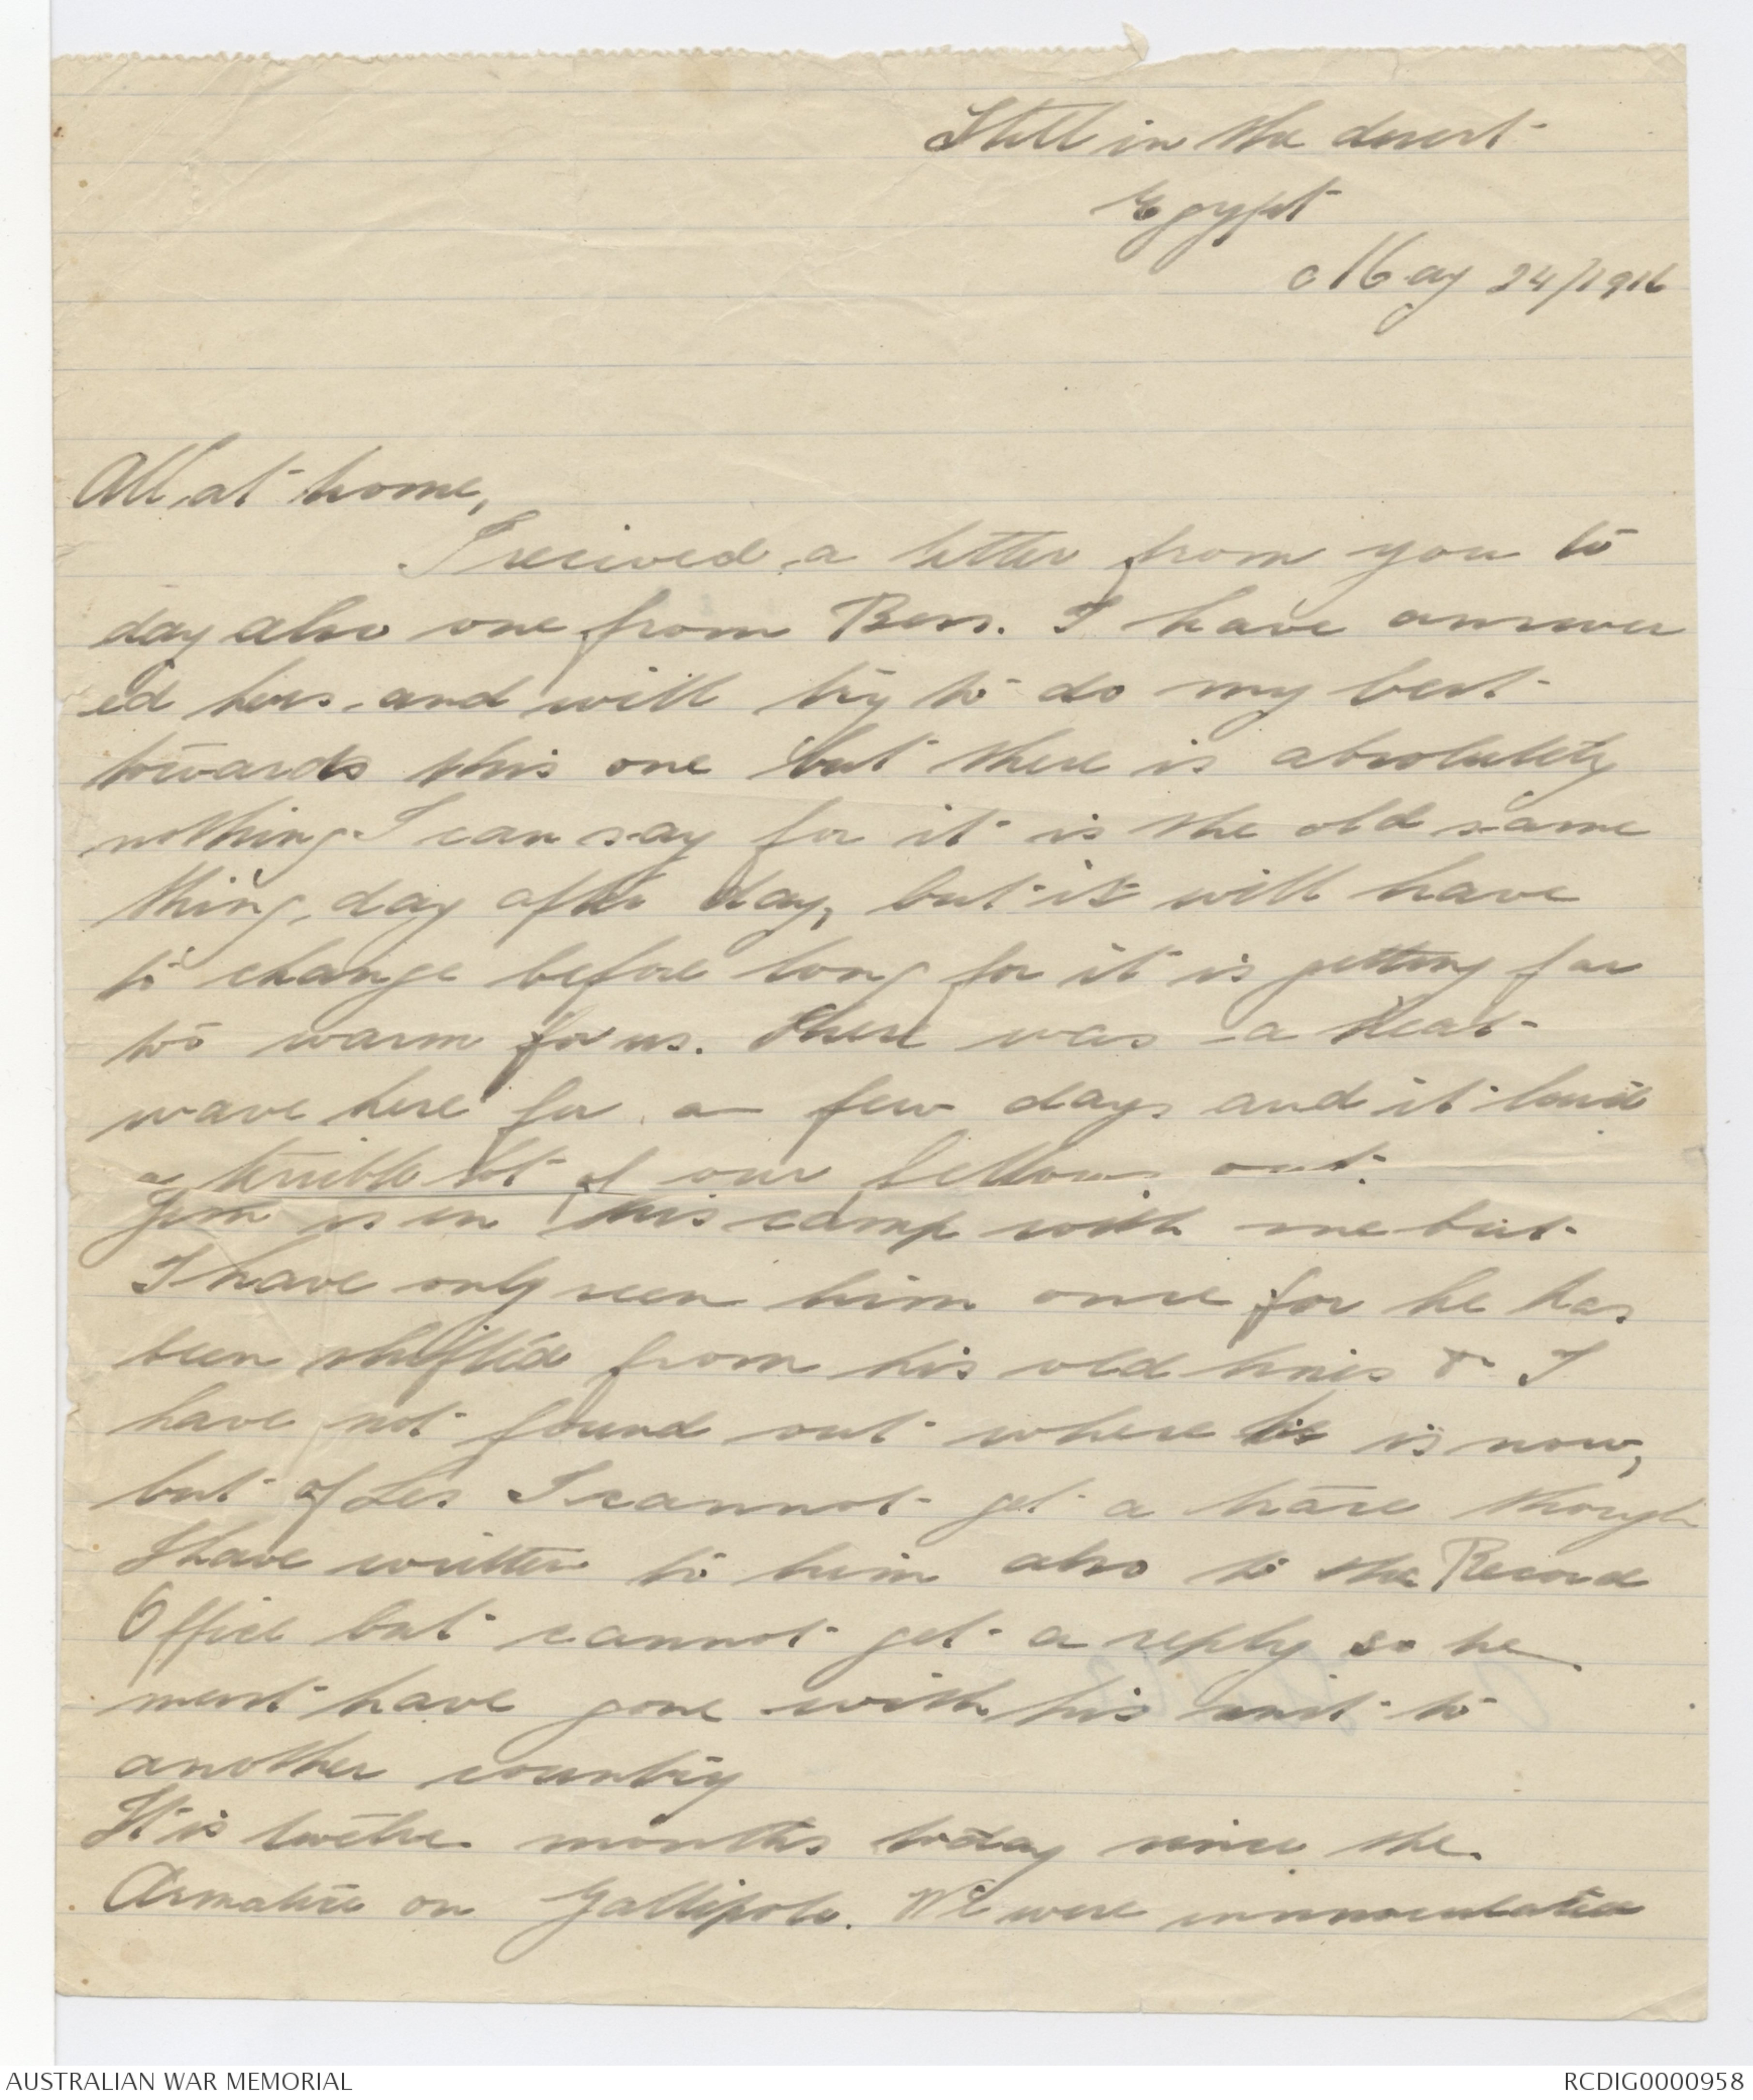 Still in the desert
Egypt
May 24/1916
All at home,
I recived a letter from you to
day also one from Bess. I have answer
ed hers and will try to do my best
towards this one but there is absolutely
nothing I can say for it is the old same
thing, day after day, but it will have
to change before long for it is getting far
to warm for us. There was a Heat
wave here for a few days and it
a terrible lot of our fellows out.
Jim is in this camp with me but
I have only seen him once for he has
been shifted from his old lines & I
have not found out where he is now,
but of Les I cannot get a trace though
I have written to him also to the Record
Office but cannot get a reply so he
must have gone with his unit to
another country
It is twelve months today since the
on Gallipoli. We were innoculated
AUSTRALIAN WAR MEMORIAL
RCDIG0000958